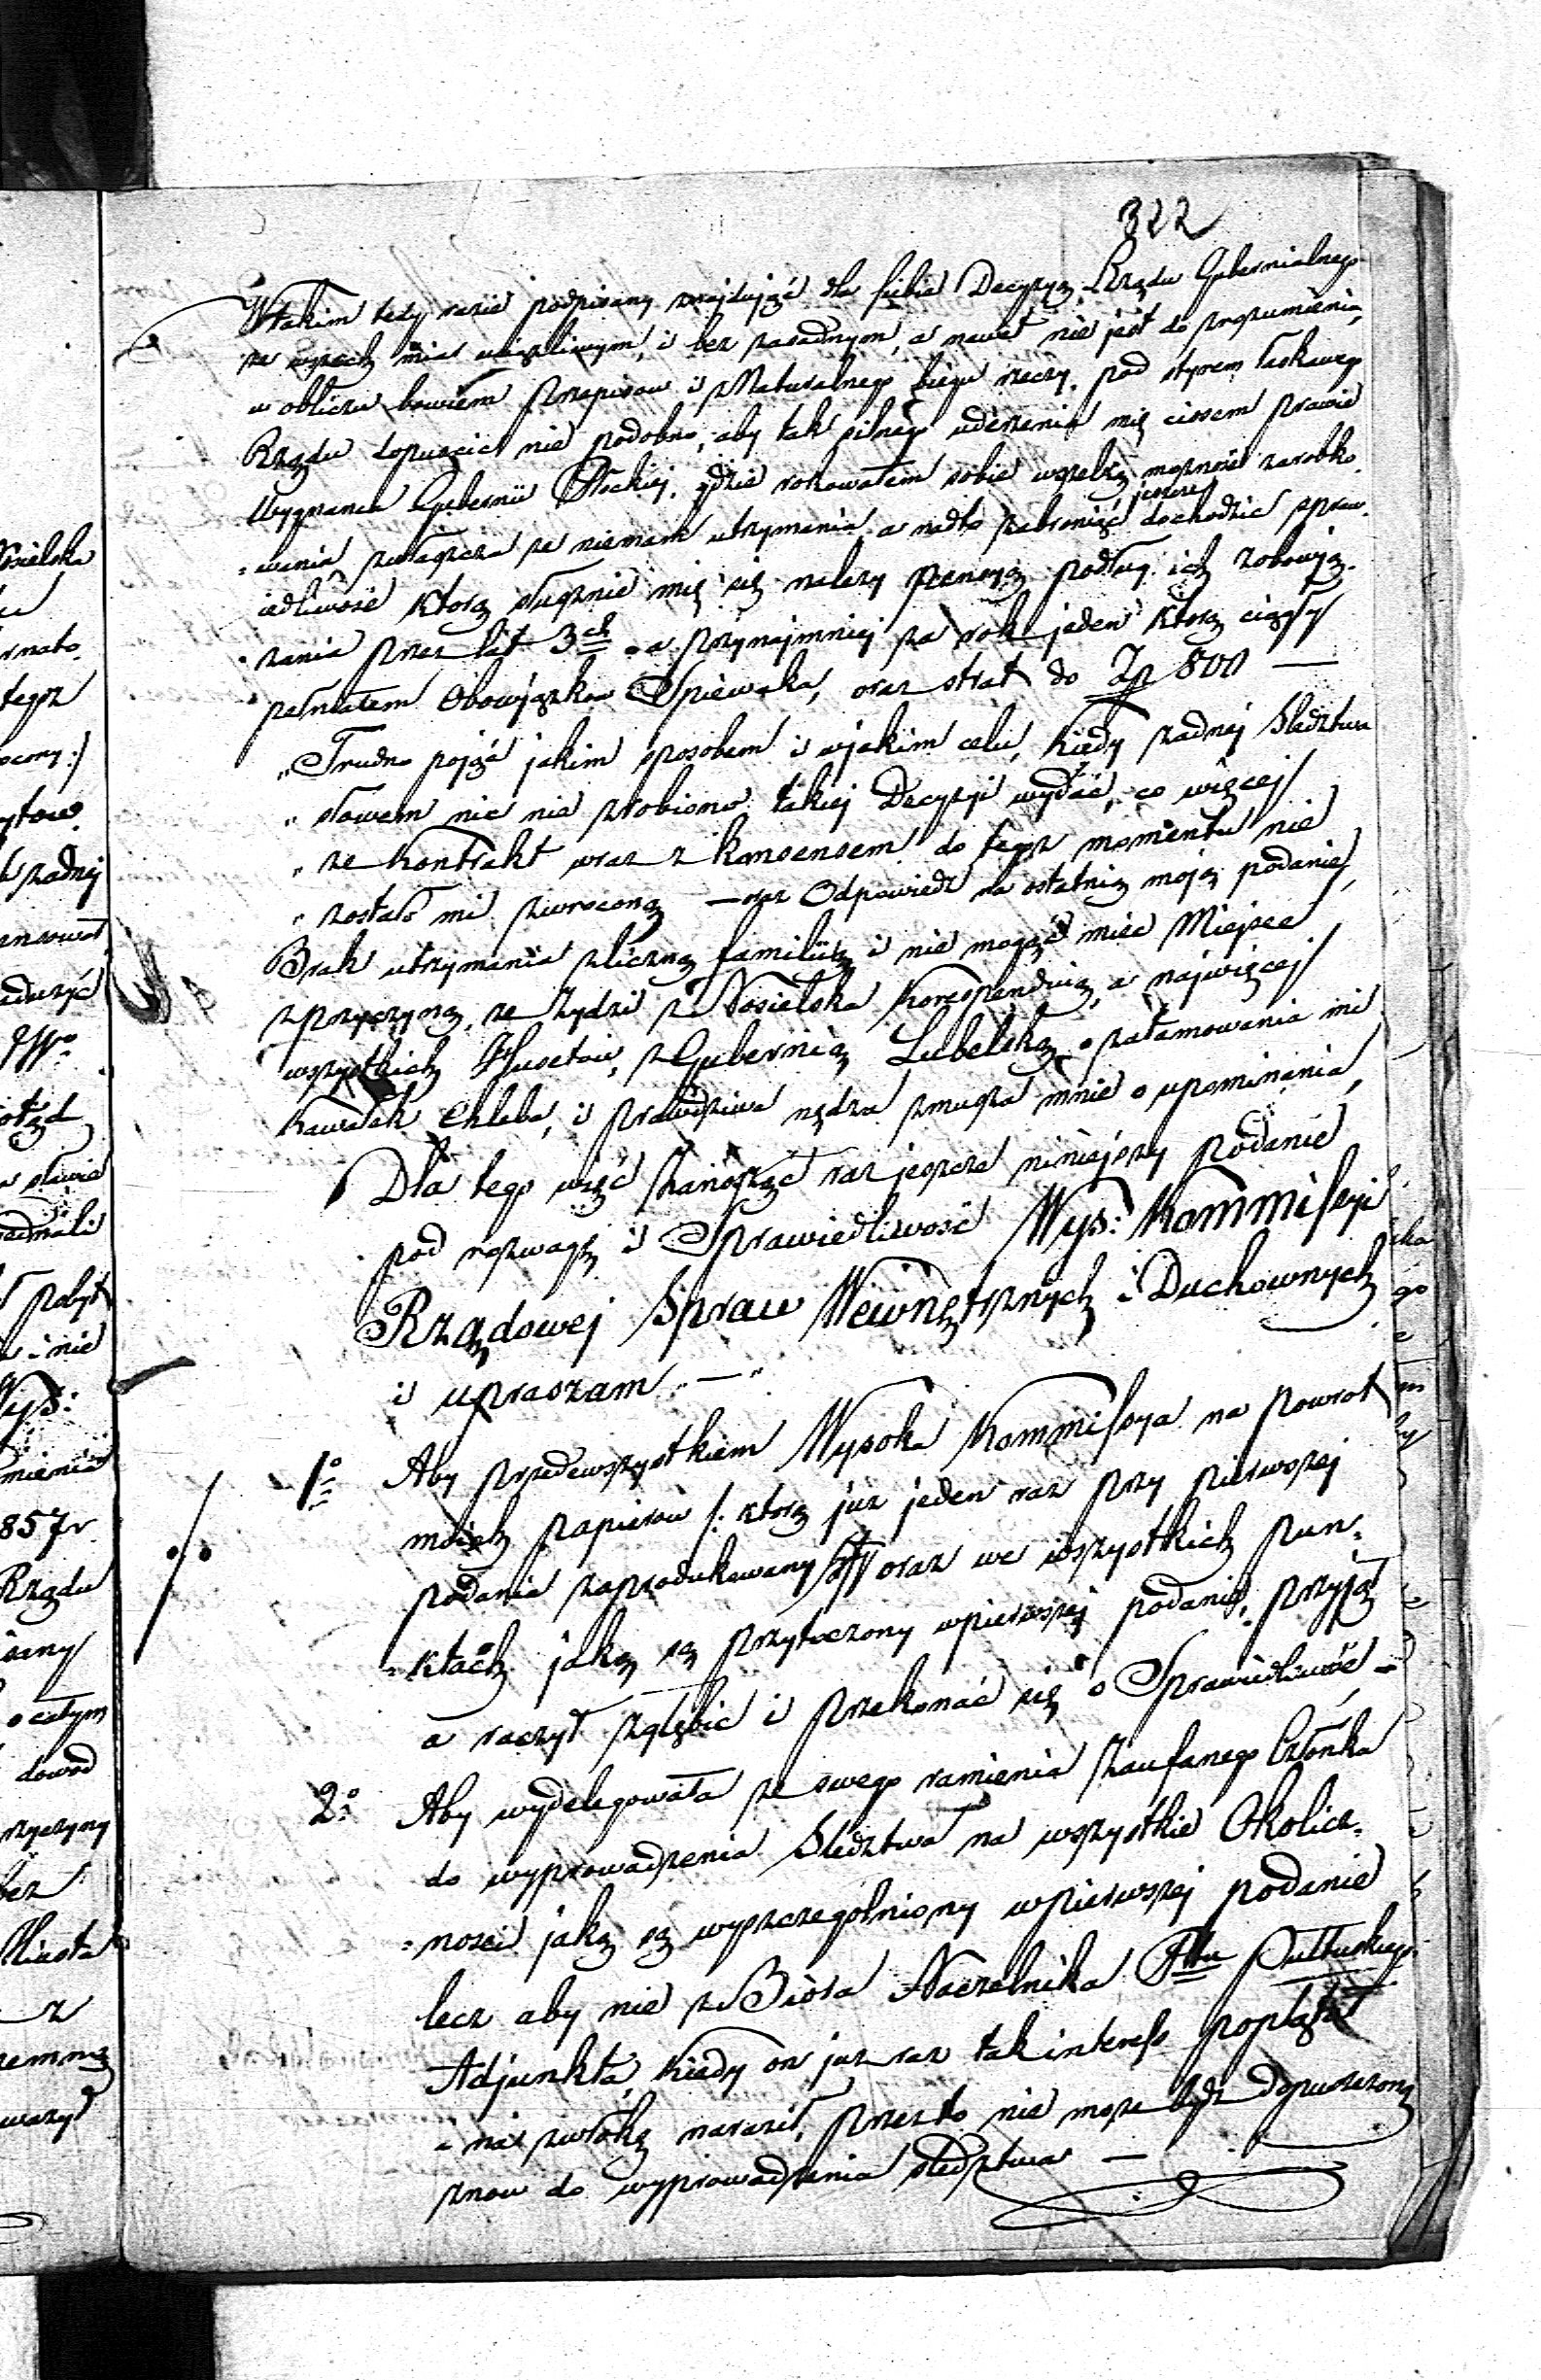 322
W takim tedy razie podpisany znajdując dla siebie Decyzyą Rządu Gubernialnego
ze wszech miar uciążliwym, i bez zasadnym, a nawet nie jest do zrozumienia,
w obliczu bowiem przepisow i z Naturalnego biegu rzeczy, pod styrem łaskawego
Rządu dopuscic nie podobno, aby tak silnego uderzenia mię ciosem prawie
Wygnania Gubernii Płockiej, gdzie rokowałem sobie wszelką możność zarobko
=wania, zwłaszcza ze niemam utrzymania a nadto zabronić jeszcze dochodzic spraw
iedliwosć ktorą słusznie mię się nalezy pensyą podług ich zobowią=
zania przez lat 3ch a przynajmniej za rok jeden ktorą ciągły
pełniałem Obowiązkow Spiewaka, oraz strat do Zp 800 —
„Trudno pojąć jakim sposobem i w jakim celu, kiedy zadnej Sledztwa
„ słowem nic nie zrobiono takiej Decyzyi wydać, co więcej
„ ze Kontrakt wraz z konsensem do tego momentu nie
„ zostało mi zwrocong — oraz Odpowiedz na ostatnią moją podanie,
Brak utrzymania z liczną familią i nie mogąc miec Miejsca
z przyczyną, ze Żydzi z Nosielska korespondują, a najwięcej
wszystkich Husetow, z Gubernią Lubelską o zatamowania mi
kawałek Chleba, i prawdziwa nędza zmusza mnie o upominania,
Dla tego więc zanosząc raz jeszcze niniejszy podanie
pod rozwagę i Sprawiedliwosć Wys: Kommissyi
Rządowej Spraw Wewnętrznych i Duchownych
i upraszam „—„
1o Aby przedewszystkiem Wysoka Kommissya na powrot
moich papierow /: ktorą juz jeden raz przy pierwszej
podania zaprodukowany :/ oraz we wszystkich pun=
=ktach jaką są przytoczony w pierwszej podanie, przyjąć
a raczył zgłębic i przekonać się o Sprawiedliwosć —
2o Aby wydelegowała ze swego ramienia zaufanego Członka
do wyprowadzenia Sledztwa na wszystkie Okolicz=
=nosci jaką są wyszczegolniony w pierwszej podanie
lecz aby nie z Biora Naczelnika Pttu Pułtuskiego
Adjunkta, kiedy on juz raz tak interess poplątał
a na zwłokę naraził, przez to nie może bydz dopuszczong
znow do wyprowadzenia sledztwa —